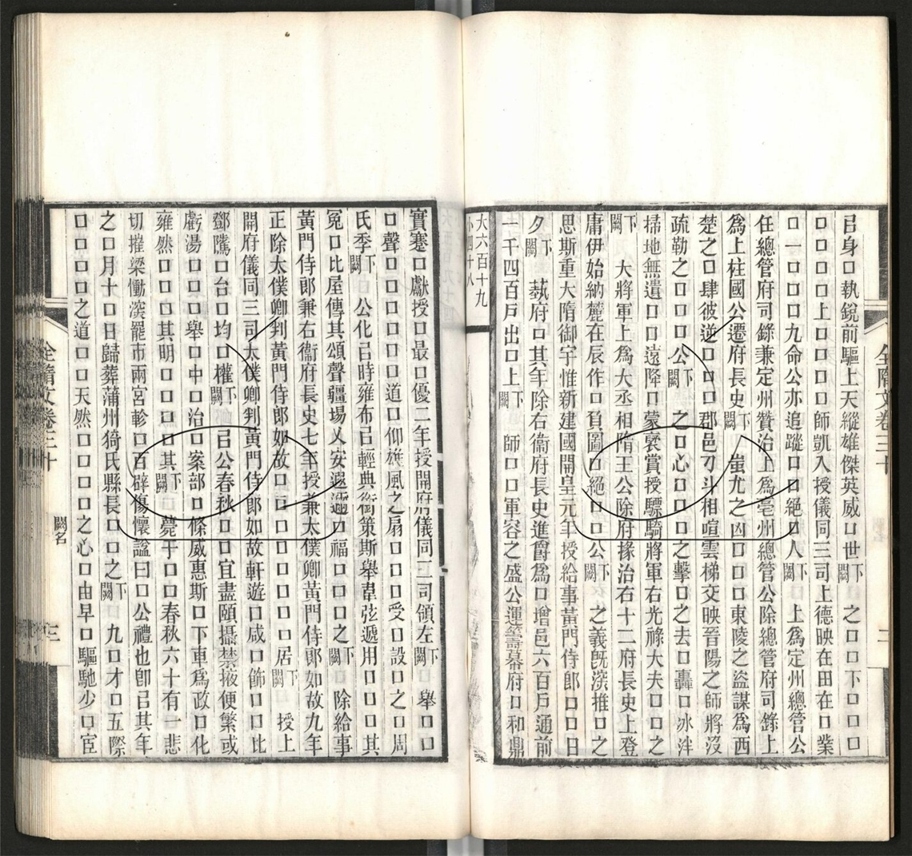 㠯身□執鏡前驅上天縱雄傑英威□世下闕之□□不□□□
□□□□上□□□□師凱入授儀同三司上德映在田在□業
□一□□□九命公亦追蹤□□絕□人下闕上爲定州總管公
任總管府司錄兼定州贊治上爲亳州總管公除總管府司錄上
爲上柱國公遷府長史下闕蚩尤之凶□□□東陵之盜謀爲西
楚之□肆彼逆□□□郡邑刁斗相喧雲梯交映晉陽之師將沒
疏勒之□□□公下闕之□心□□□之擊□之去□轟□冰泮
掃地無遺□□遠降□蒙褒賞授驃騎將軍右光祿大夫□□之
下闕大將軍上爲大丞相隋王公除府掾治右十二府長史上登
庸伊始納麓在辰作□負圖□絕□□公下闕之義旣演推□之
思斯重大隋御宇惟新建國開皇元年授給事黃門侍郎□□日
夕下闕蓺府□其年除右衞府長史進爵爲□增邑六百戶通前
一千四百戶出□上下闕師□□軍容之盛公運籌幕府□和鼎
大六百十九
小四十八
實蹇□獻授□最□優二年授開府儀同三司領左下闕舉□□
□聲□□□□□道□仰雄風之扇□□□受□設□之□周
氏季下闕公化㠯時雍布㠯輕典銜策斯舉韋弦遞用□□□其
冤□比屋傳其頌聲疆場乂安遐邇□福□□□之下闕除給事
黃門侍郎兼右衞府長史七年授兼太僕卿黃門侍郎如故九年
正除太僕卿判黃門侍郎如故□□□□□□□居下闕授上
開府儀同三司太僕卿判黃門侍郎如故軒遊□咸□飾□□比
鄧騭□台□均□權下闕㠯公春秋□□宜盡頤攝禁掖便繁或
虧湯□□□舉□中□治□案部□條威惠斯□下車爲政□化
雍然□□□其明□□□□其下闕薨于□□□春秋六十有一悲
切摧梁慟演罷市兩宮軫□百辟傷懷諡曰□公禮也卽㠯其年
之□月十□日歸葬蒲州猗氏縣長□□之下闕九□才□五際
□□□□之道□□天然□□□□□之心□由早□驅馳少□宦
全隋文卷三十
闕名
三